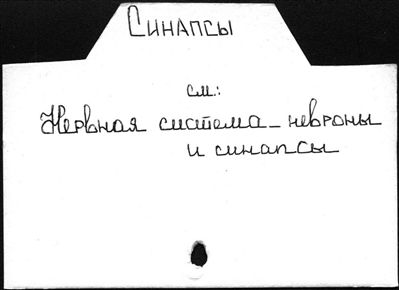 Синапсы
см.:
Нервная система - невроны
и синапсы